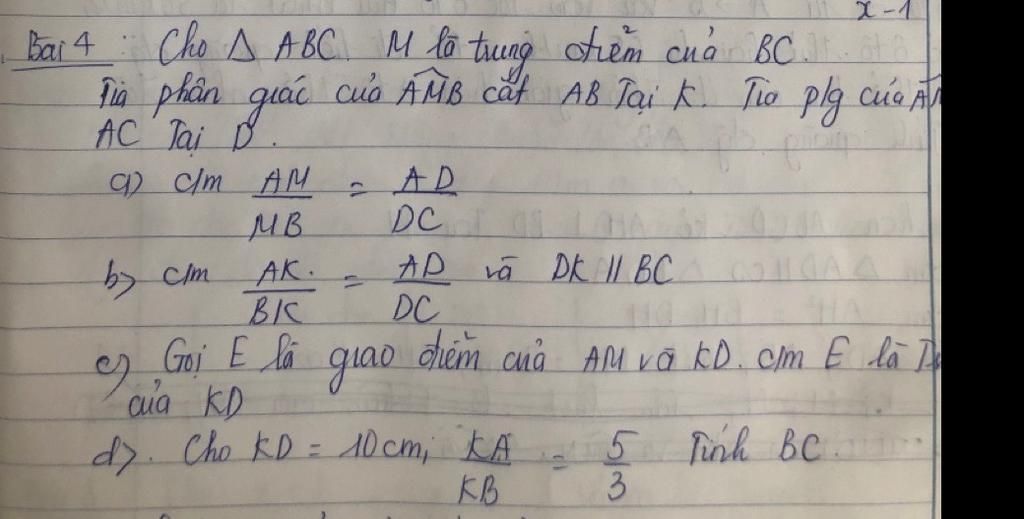 x-1
Bài 4 : Cho Δ ABC. M là trung điểm của BC.
Tia phân giác của AMB cắt AB Tại K. Tia p/g của
AC Tại D.
a) c/m AM/MB = AD/DC
b) c/m AK/BK = AD/DC và DK // BC
c) Gọi E là giao điểm của AM và KD. c/m E là
của KD
d). Cho KD = 10cm, KA/KB = 5/3 Tính BC.